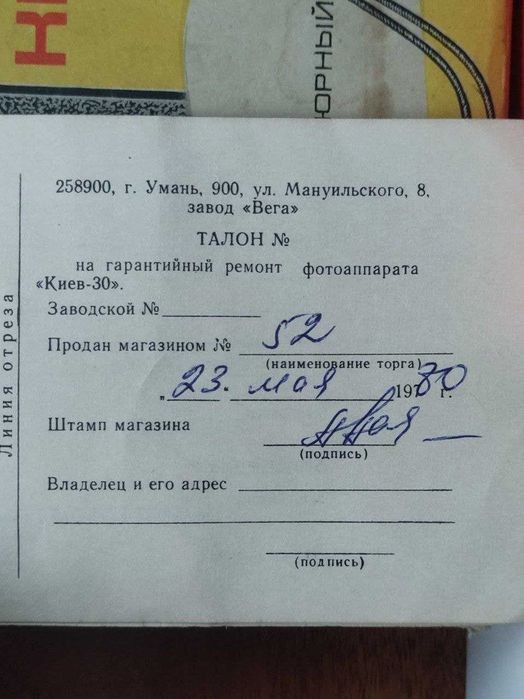 НЫЙ
258900, г. Умань, 900, ул. Мануильского, 8,
завод «Вега»
ТАЛОН №
на гарантийный ремонт фотоаппарата
«Киев-30».
Заводской №
Продан магазином № 52
(наименование торга)
„ 23. мая 1980 г.
Штамп магазина
(подпись)
Владелец и его адрес
(подпись)
Линия отреза